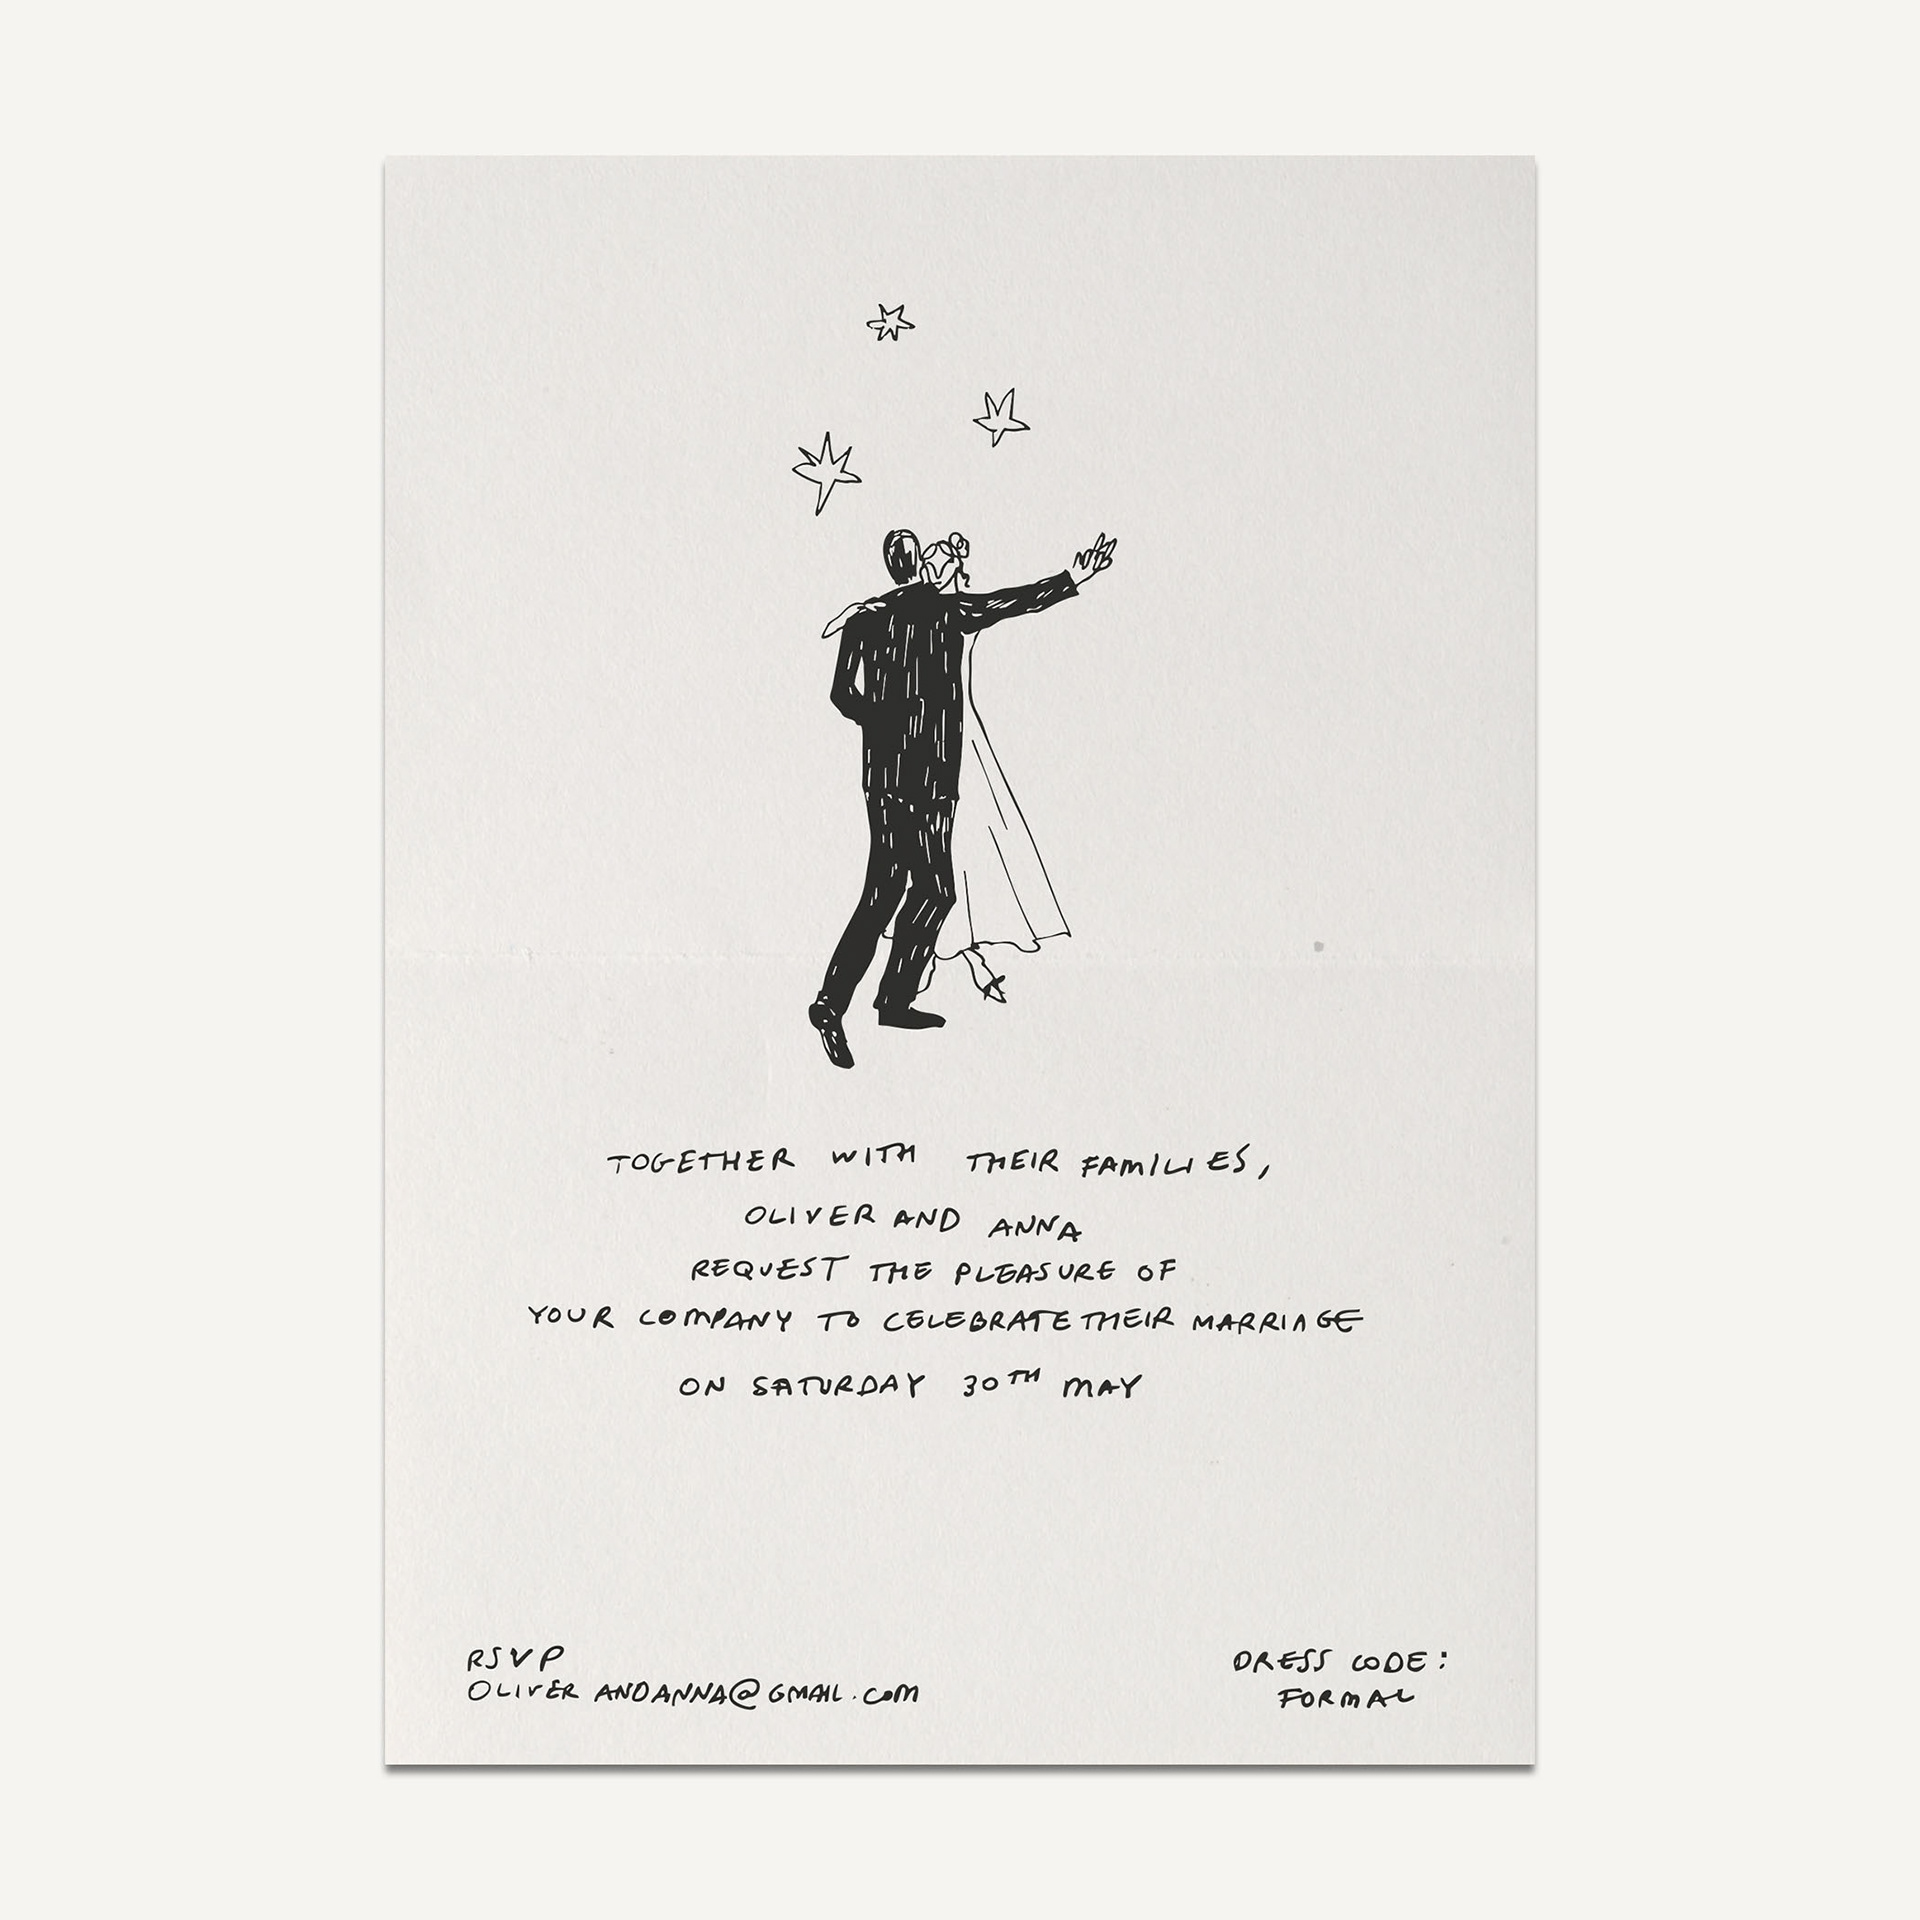 TOGETHER WITH THEIR FAMILIES,
OLIVER AND ANNA
REQUEST THE PLEASURE OF
YOUR COMPANY TO CELEBRATE THEIR MARRIAGE
ON SATURDAY 30TH MAY
RSVP
OLIVER ANDANNA@GMAIL.COM
DRESS CODE:
FORMAL